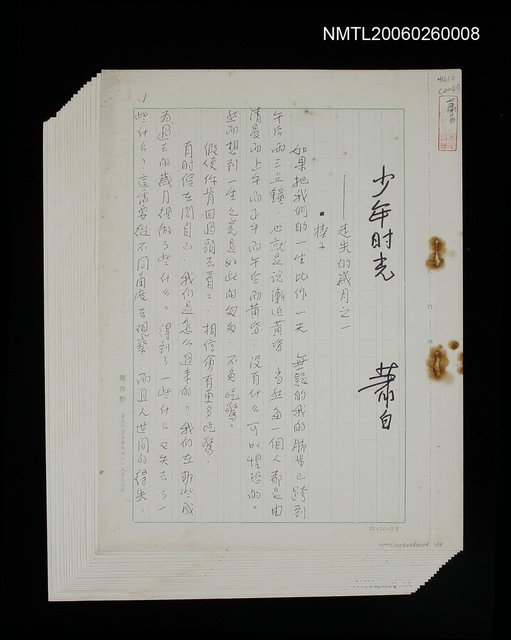 NMTL20060260008
少年时光
蕭白
——走失的歲月之一
•楔子
如果把我們的一生比作一天，無疑的我的腳步已跨到
午后兩三点鐘，也就是说漸近黄昏，当然每一個人都是由
清晨而上午而正午而午后而黄昏，沒有什么可以懼恐的。
然而想到一生之竟是如此的匆匆，不免吃驚。
假使你肯回過頭去看看，相信會有更多吃驚。
有时候在問自己，我們是怎么過来的。我們在那些成
为過去的歲月裡做了些什么？得到了一些什么又失去了一
些什么？這需要從不同角度去观察，而且人世間的得失，
1